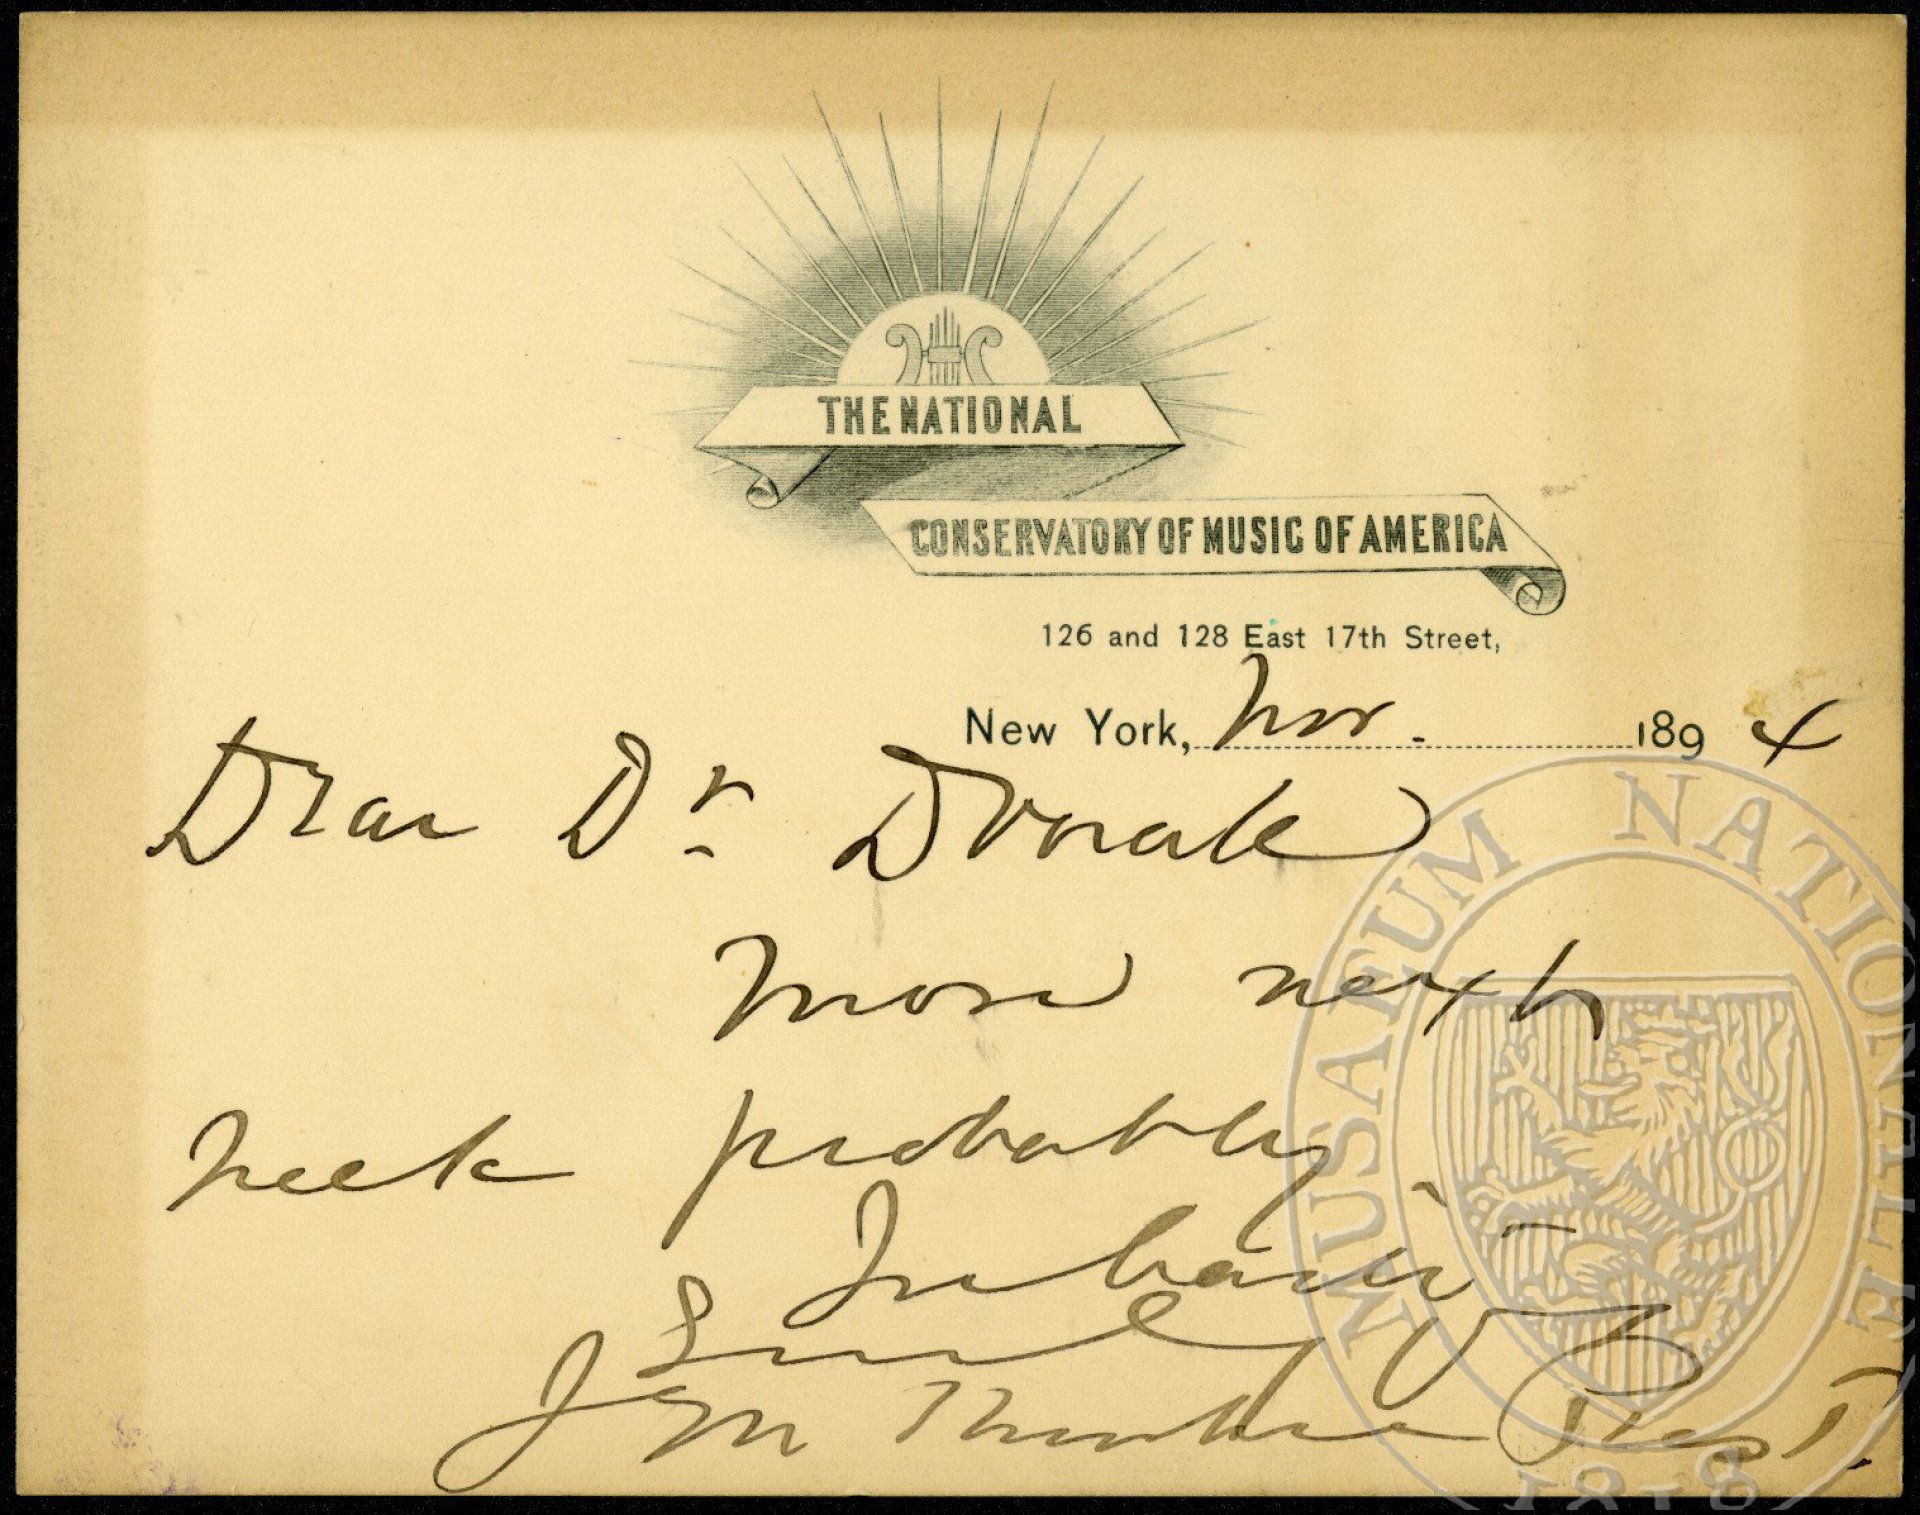 THE NATIONAL
CONSERVATORY OF MUSIC OF AMERICA
126 and 128 East 17th Street,
New York, Nov. 1894
Dear Dr. Dvorak
More next
week probably
In haste
Sincerely
J M Thurber Prest.
MUSAEUM NATIONALE
1818